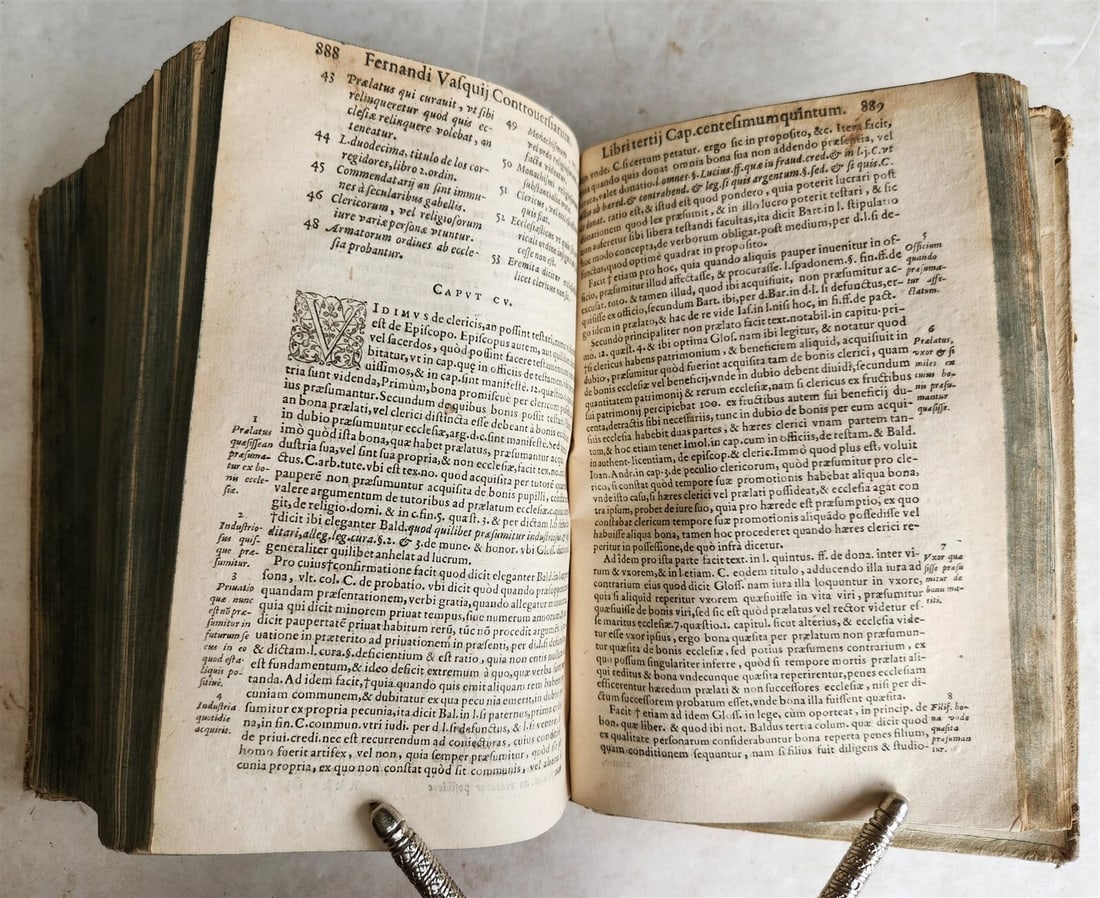 888
Fernandi Vaſquij Controuerſiarum
43 Prælatus qui curauit, vt ſibi
relinqueretur quod quis ec-
cleſiæ relinquere volebat, an
teneatur.
44 L.duodecima, titulo de los cor-
regidores, libro 2. ordin.
45 Commendatarij an ſint immu-
nes à ſecularibus gabellis.
46 Clericorum, vel religioſorum
iure variæ perſonæ vtuntur.
48 Armatorum ordines ab eccle-
ſia probantur.
49
50
51 Clericus, vel
quis fiat.
52 Eccleſiaſticus vt quis
53 Eremita dicitur
licet clericus non ſit.
CAPVT CV.
VIDIMVS de clericis, an poſſint teſtari,
eſt de Epiſcopo. Epiſcopus autem, aut quilibet
vel ſacerdos, quòd poſſint facere teſtamentum
bitatur, vt in cap. quę in officiis de teſtam.
uiſſimos, & in cap. ſint manifeſtę. 12. quæſt.
tria ſunt videnda, Primùm, bona promiſcuè per clericum
ius præſumantur. Secundum de quibus bonis poſſit teſtari
an bona prælati, vel clerici diſtincta eſſe debeant à bonis
in dubio præſumuntur eccleſiæ, arg. d. c. ſint manifeſtę. Sed
imò quòd iſta bona, quæ habet prælatus, præſumantur
duſtria ſua, vel ſint ſua propria, & non eccleſiæ, facit tex.
ctus. C. arb. tute. vbi eſt tex. no. quod acquiſita per tutorẽ
pauperẽ non præſumuntur acquiſita de bonis pupilli,
valere argumentum de tutoribus ad prælatum eccleſiæ
git, de religio. domi. & in c. fin. 5. quæſt. 3. & per dictam l.
†dicit ibi eleganter Bald. quod quilibet præſumitur induſtrioſus
ditari, alleg. leg. cura. §. 2. & 3. de mune. & honor. vbi Gloſ.
generaliter quilibet anhelat ad lucrum.
Pro cuius†confirmatione facit quod dicit eleganter Bald. in
ſona, vlt. col. C. de probatio. vbi dicit quòd quando
quandam præſentationem, verbi gratia, quando allegatur
quia qui dicit minorem priuat tempus, ſiue numerum annorum
dicit paupertatẽ priuat habitum rerũ, tũc nõ procedit argumẽ.
uatione in præterito ad priuationem in præſenti, per d. l. ſi
& dictam. l. cura. §. deficientium & eſt ratio, quia non entis
eſt fundamentum, & ideo deficit extremum à quo, quæ
tanda. Ad idem facit, †quia quando quis emit aliquam rem
cuniam communem, & dubitatur ex qua pecunia emerit, in
ſumitur ex propria pecunia, ita dicit Bal. in l. ſi paternus, prima
na, in fin. C. commun. vtri iudi. per d. l. ſi defunctus, & l. ſi
de priui. credi. nec eſt recurrendum ad coniecturas, cuius
homo fuerit artifex, vel non, quia ſemper præſumitur, quòd
cunia propria, ex quo non conſtat quòd ſit communis, vel
1
Prælatus
quæſiſſe an
præſuma-
tur ex bo-
nis eccle-
ſiæ.
2
Induſtrio-
ſus quiſ-
que præ-
ſumitur.
3
Priuatio
quæ nunc
eſt nõ præ-
ſumitur in
futurum ſe
cus in eo
quod eſt a-
liquis po-
ſitiuè.
4
Induſtria
quotidie
acquirit.
Libri tertij Cap. centeſimumquintum. 889
vnde. C. ſi certum petatur. ergo ſic in propoſito, &c. Item facit,
quia quando quis donat omnia bona ſua non addendo præſentia, vel
futura, valet donatio. l. omnes. §. Lucius. ff. quæ in fraud. cred. & in l. j. C. vt
hæred. & contrahend. & leg. ſi quis argentum. §. ſed. & ſi quis C.
donat. ratio eſt, & iſtud eſt quod pondero, quia poterit lucrari poſt
donationem quod lex præſumit, & in illo lucro poterit teſtari, & ſic
non auferetur ſibi libera teſtandi facultas, ita dicit Bart. in l. ſtipulatio
hoc modo concepta, de verborum obligat. poſt medium, per d. l. ſi de-
functus, quod optimè quadrat in propoſito.
Facit † etiam pro hoc, quia quando aliquis pauper inuenitur in of-
ficio, præſumitur illud affectaſſe, & procuraſſe. l. ſpadonem. §. fin. ff. de
excuſat. tuto. & tamen illud, quod ibi acquiſiuit, non præſumitur ac-
quiſiſſe ex officio, ſecundum Bart. ibi, per d. Bar. in d. l. ſi defunctus, er-
go idem in prælato, & hac de re vide Iaſ. in l. niſi hoc, in fi. ff. de pact.
Secundò principaliter non prælato facit text. notabil. in capitu. pri-
mo. 12. quæſt. 4. & ibi optima Gloſ. nam ibi legitur, & notatur quod
†ſi clericus habens patrimonium, & beneficium aliquid, acquiſiuit in
dubio, præſumitur quòd fuerint acquiſita tam de bonis clerici, quam
de bonis eccleſiæ vel beneficij, vnde in dubio debent diuidi, ſecundum
quantitatem patrimonij & rerum eccleſiæ, nam ſi clericus ex fructibus
ſui patrimonij percipiebat 100. ex fructibus autem ſui beneficij du-
centa, detractis ſibi neceſſariis, tunc in dubio de bonis per eum acqui-
ſitis eccleſia habebit duas partes, & hæres clerici vnam partem tan-
tum, & hoc etiam tenet Imol. in cap. cum in officiis, de teſtam. & Bald.
in authent. licentiam, de epiſcop. & cleric. Immò quod plus eſt, voluit
Ioan. Andr. in cap. 3. de peculio clericorum, quòd præſumitur pro cle-
rico, ſi conſtat quòd tempore ſuæ promotionis habebat aliqua bona,
vnde iſto caſu, ſi hæres clerici vel prælati poſſideat, & eccleſia agat con
tra ipſum, probet de iure ſuo, quia pro hærede eſt præſumptio, ex quo
conſtabat clericum tempore ſuæ promotionis aliquãdo poſſediſſe vel
habuiſſe aliqua bona, tamen hoc procederet quando hæres clerici re-
peritur in poſſeſſione, de quò infrà dicetur.
Ad idem pro iſta parte facit text. in l. quintus. ff. de dona. inter vi-
rum & vxorem, & in l. etiam. C. eodem titulo, adducendo illa iura ad
contrarium eius quod dicit Gloſſ. nam iura illa loquuntur in vxore,
quia ſi aliquid reperitur vxorem quæſiuiſſe in vita viri, præſumitur
quæſiuiſſe de bonis viri, ſed ſic eſt quòd prælatus vel rector videtur eſ-
ſe maritus eccleſiæ. 7. quæſtio. 1. capitul. ſicut alterius, & eccleſia vide-
tur eſſe vxor ipſius, ergo bona quæſita per prælatum non præſumun-
tur quæſita de bonis eccleſiæ, ſed potius præſumens contrarium, ex
quo poſſum ſingulariter inferre, quòd ſi tempore mortis prælati ali-
qui reditus & bona vndecunque quæſita reperirentur, penes eccleſiam
efficerentur hæredum prælati & non ſucceſſores eccleſiæ, niſi per di-
ctum ſucceſſorem probatum eſſet, vnde bona illa fuiſſent quæſita.
Facit † etiam ad idem Gloſſ. in lege, cùm oporteat, in princip. de
bon. quæ liber. & quod ibi not. Baldus tertia colum. quæ dicit quod
ex qualitate perſonarum conſiderabuntur bona reperta penes filium,
quàm conditionem ſequuntur, nam ſi filius fuit diligens & ſtudio-
5
Officium
quando
præſuma-
tur affe-
ctatum.
6
Prælatus,
vxor & fi
miles ex
cuius bo-
nis præſu-
mantur
quæſiſſe.
7
Vxor quæ
ſiſſe præſu
mitur de
bonis ma-
riti.
8
Filiſ. bo-
na vnde
quæſita
præſuman
tur.